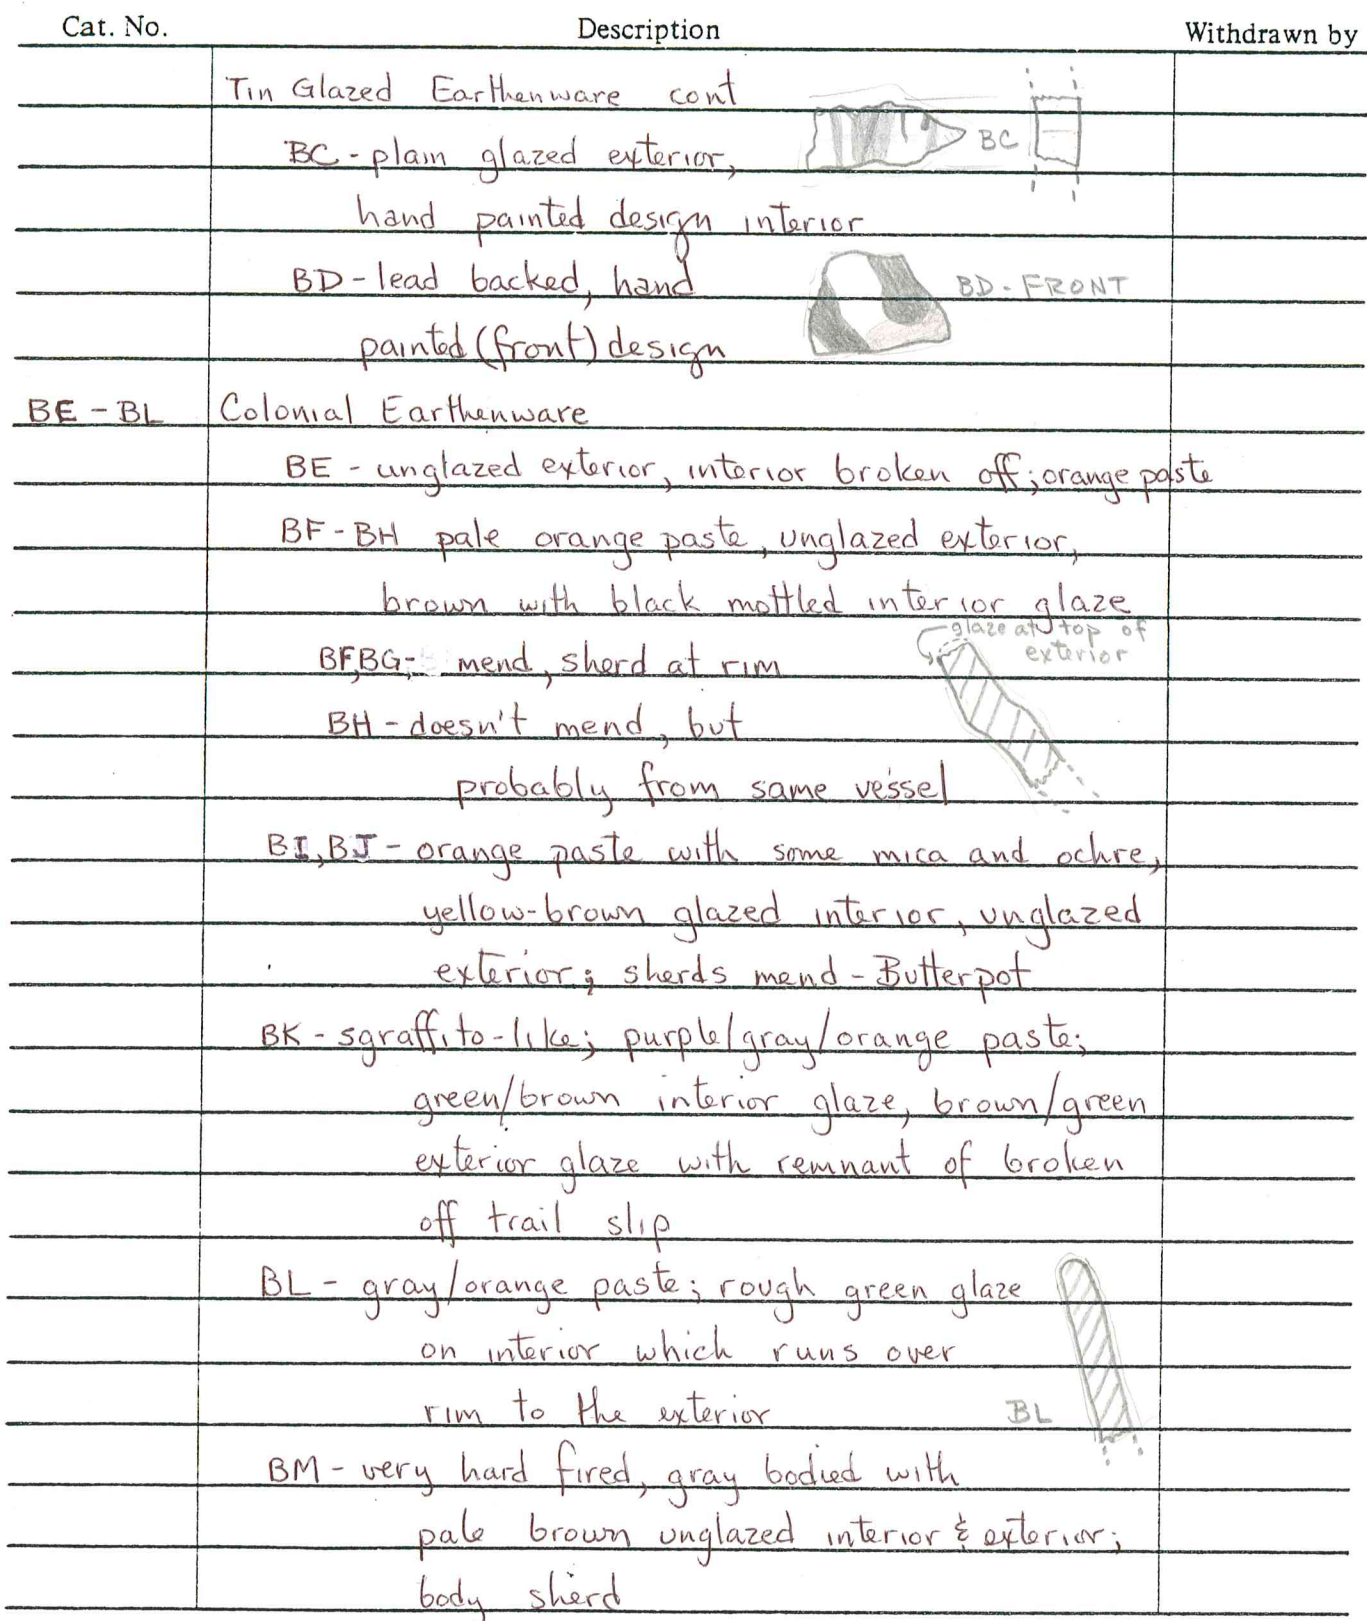 Cat. No. Description Withdrawn by
Tin Glazed Earthenware cont
BC - plain glazed exterior,
BC
hand painted design interior
BD - lead backed, hand
BD - FRONT
painted (front) design
BE - BL Colonial Earthenware
BE - unglazed exterior, interior broken off; orange paste
BF - BH pale orange paste, unglazed exterior,
brown with black mottled interior glaze
glaze at top of
exterior
BF, BG - mend, sherd at rim
BH - doesn't mend, but
probably from same vessel
BI, BJ - orange paste with some mica and ochre,
yellow-brown glazed interior, unglazed
exterior; sherds mend - Butterpot
BK - sgraffito-like; purple/gray/orange paste;
green/brown interior glaze, brown/green
exterior glaze with remnant of broken
off trail slip
BL - gray/orange paste; rough green glaze
on interior which runs over
rim to the exterior
BL
BM - very hard fired, gray bodied with
pale brown unglazed interior & exterior;
body sherd